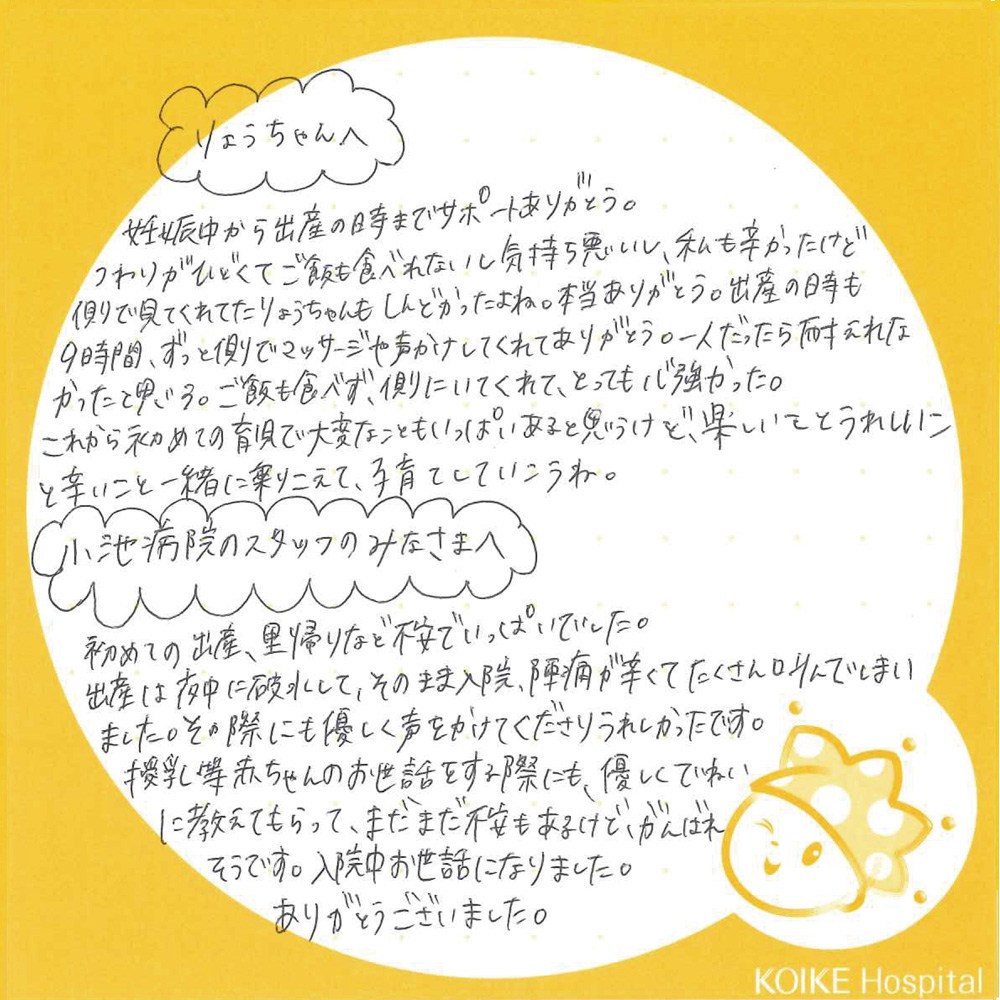 りょうちゃんへ
妊娠中から出産の時までサポートありがとう。
つわりがひどくてご飯も食べれないし気持ち悪いし、私も辛かったけど
側で見てくれてたりょうちゃんもしんどかったよね。本当ありがとう。出産の時も
9時間、ずっと側でマッサージや声かけしてくれてありがとう。一人だったら耐えれな
かったと思う。ご飯も食べず、側にいてくれて、とっても心強かった。
これから初めての育児で大変なこともいっぱいあると思うけど、楽しいことうれしいこ
と辛いこと一緒に乗りこえて、子育てしていこうね。
小池病院のスタッフのみなさまへ
初めての出産、里帰りなど不安でいっぱいでした。
出産は夜中に破水して、そのまま入院、陣痛が辛くてたくさん叫んでしまい
ました。その際にも優しく声をかけてくださりうれしかったです。
授乳等赤ちゃんのお世話をする際にも、優しくていねい
に教えてもらって、まだまだ不安もあるけど、がんばれ
そうです。入院中お世話になりました。
ありがとうございました。
KOIKE Hospital